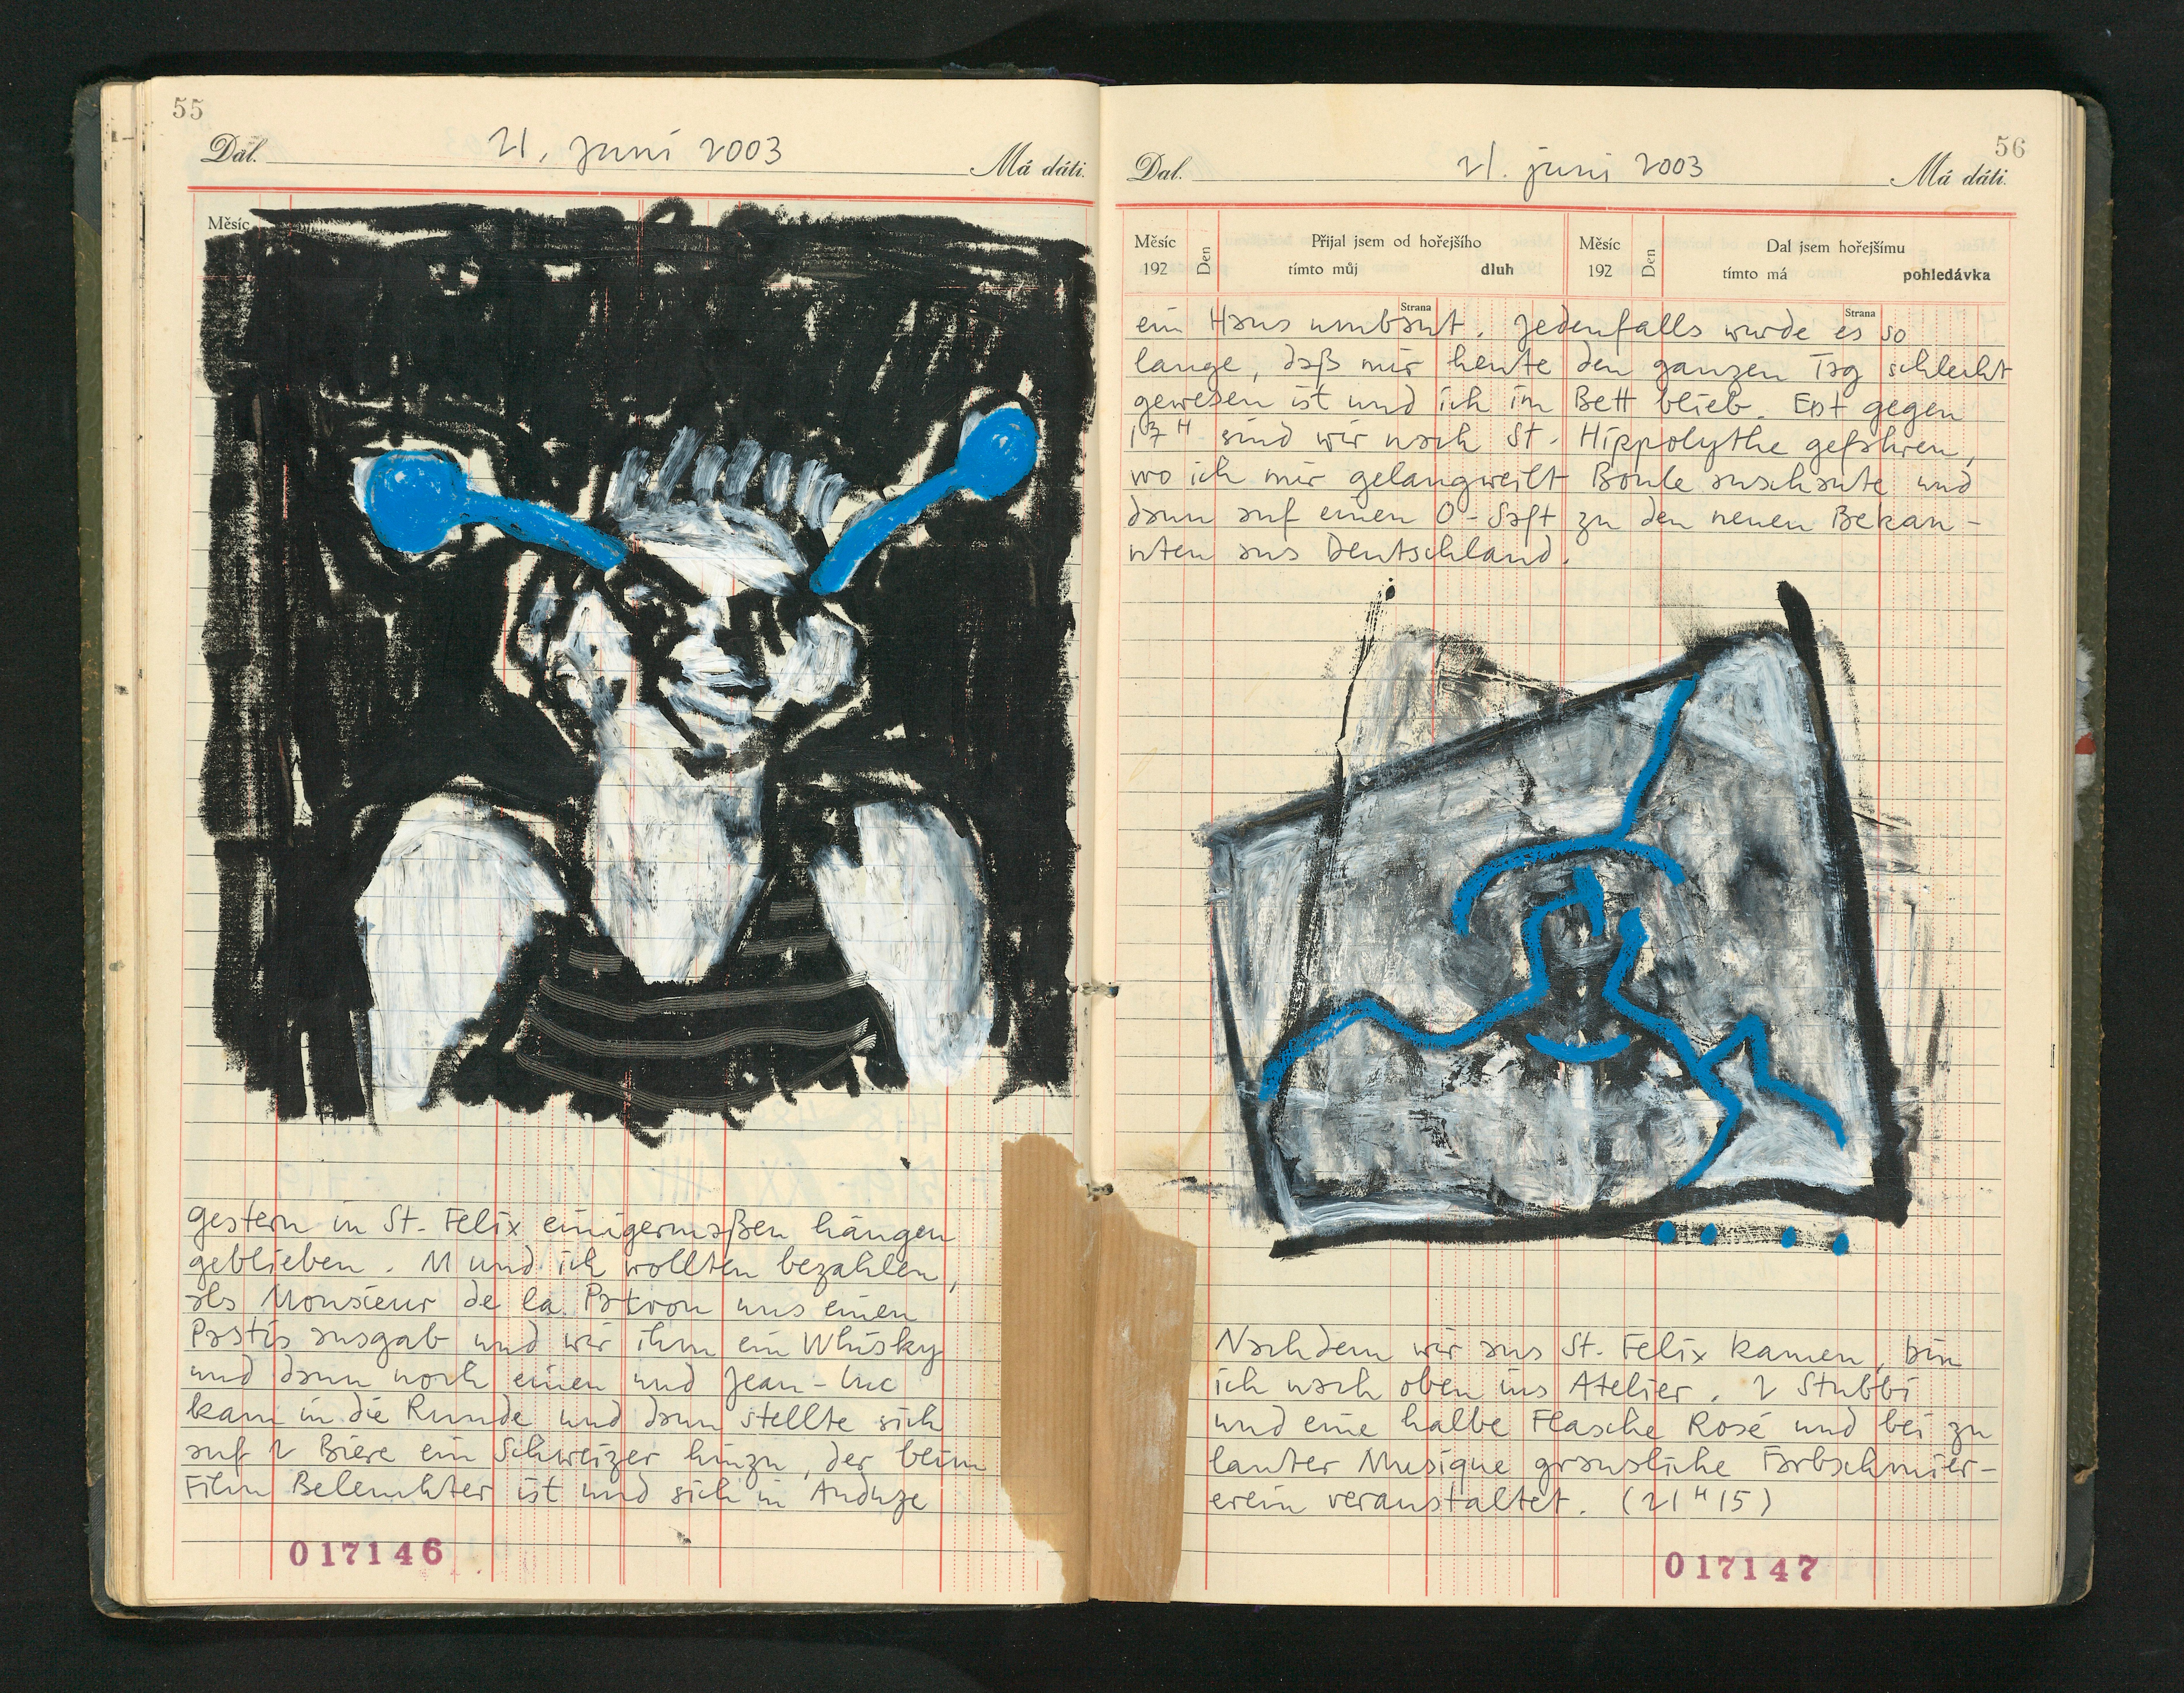 55
Dal. 21. Juni 2003 Má dáti.
Měsíc
gestern in St. Felix einigermaßen hängen
geblieben. M und ich wollten bezahlen,
als Monsieur de la Patron uns einen
Pastis ausgab und wir ihm ein Whisky
und dann noch einen und Jean-Luc
kam in die Runde und dann stellte sich
auf 2 Biere ein Schweizer hinzu, der beim
Film Beleuchter ist und sich in Anduze
017146
56
Dal. 21. juni 2003 Má dáti.
Měsíc 192 Den Přijal jsem od hořejšího Měsíc 192 Den Dal jsem hořejšímu
tímto můj dluh tímto má pohledávka
Strana Strana
ein Haus umbaut. Jedenfalls wurde es so
lange, daß mir heute den ganzen Tag schlecht
gewesen ist und ich im Bett blieb. Erst gegen
17H sind wir nach St. Hippolythe gefahren,
wo ich mir gelangweilt Boule anschaute und
dann auf einen O-Saft zu den neuen Bekan-
nten aus Deutschland.
Nachdem wir aus St. Felix kamen, bin
ich nach oben ins Atelier. 2 Stubbi
und eine halbe Flasche Rosé und bei zu
lauter Musique grausliche Farbschmier-
erein veranstaltet. (21H15)
017147